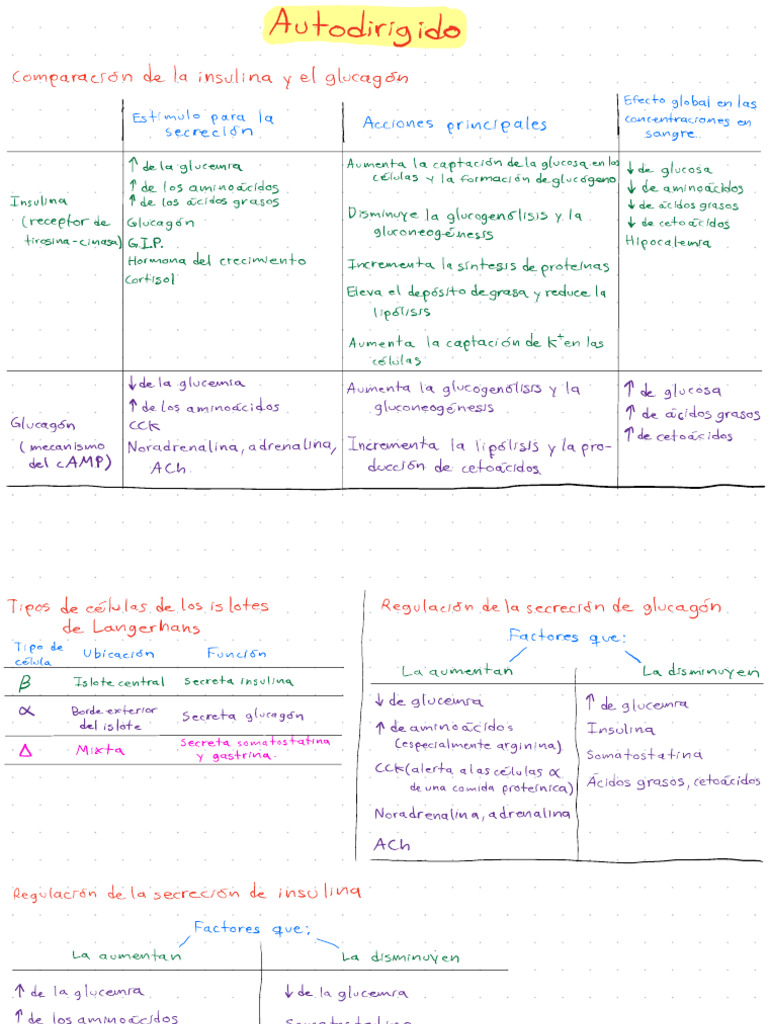 Autodirigido
Comparación de la insulina y el glucagón
Estímulo para la
secreción
Acciones principales
Efecto global en las
concentraciones en
sangre
Insulina
(receptor de
tirosina-cinasa)
↑ de la glucemia
↑ de los aminoácidos
↑ de los ácidos grasos
Glucagón
G.I.P.
Hormona del crecimiento
Cortisol
Aumenta la captación de la glucosa en las
células y la formación de glucógeno
Disminuye la glucogenólisis y la
gluconeogénesis
Incrementa la síntesis de proteínas
Eleva el depósito de grasa y reduce la
lipólisis
Aumenta la captación de K+ en las
células
↓ de glucosa
↓ de aminoácidos
↓ de ácidos grasos
↓ de cetoácidos
Hipocalemia
Glucagón
(mecanismo
del cAMP)
↓ de la glucemia
↑ de los aminoácidos
CCK
Noradrenalina, adrenalina,
ACh
Aumenta la glucogenólisis y la
gluconeogénesis
Incrementa la lipólisis y la pro-
ducción de cetoácidos
↑ de glucosa
↑ de ácidos grasos
↑ de cetoácidos
Tipos de células de los islotes
de Langerhans
Tipo de
célula
Ubicación
Función
β
Islote central
Secreta insulina
α
Borde exterior
del islote
Secreta glucagón
Δ
Mixta
Secreta somatostatina
y gastrina
Regulación de la secreción de glucagón
Factores que:
La aumentan
La disminuyen
↓ de glucemia
↑ de aminoácidos
(especialmente arginina)
CCK (alerta a las células α
de una comida proteínica)
Noradrenalina, adrenalina
ACh
↑ de glucemia
Insulina
Somatostatina
Ácidos grasos, cetoácidos
Regulación de la secreción de insulina
Factores que:
La aumentan
La disminuyen
↑ de la glucemia
↑ de los aminoácidos
↓ de la glucemia
Somatostatina